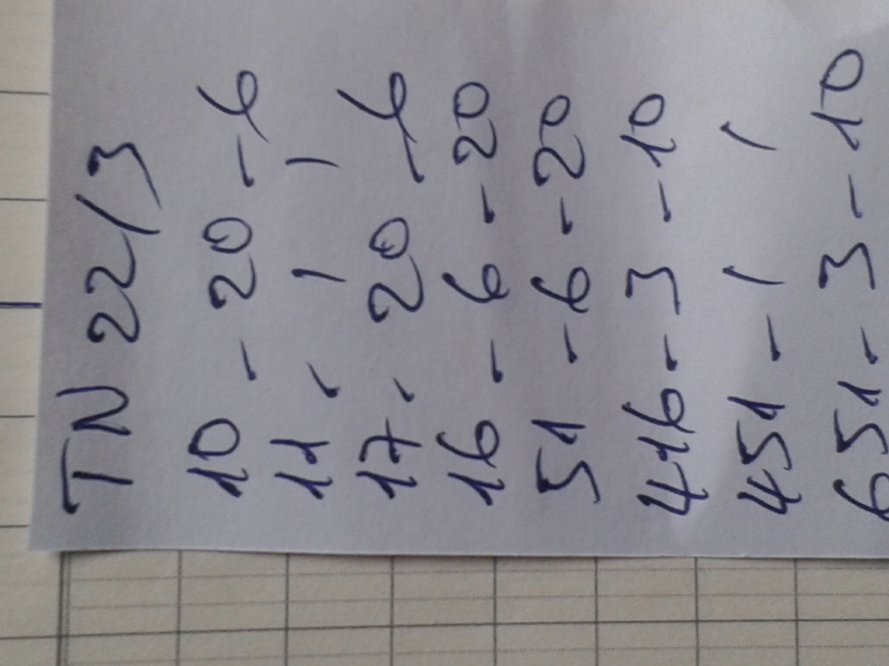 TN 22/3
10 - 20 - 6
11 , ' '
17 , 20 - 6
16 - 6 - 20
51 - 6 - 20
416 - 3 - 10
451 - ' '
651 - 3 - 10